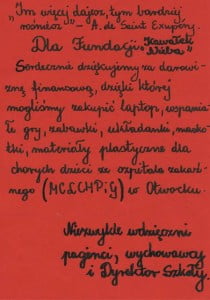 „Im więcej dajesz, tym bardziej
wzrastasz” – A. de Saint Exupéry.
Dla Fundacji „Kawałek
Nieba”
Serdecznie dziękujemy za darowiz-
nę finansową, dzięki której
mogliśmy zakupić laptop, wspania-
łe gry, zabawki, układanki, masko-
tki, materiały plastyczne dla
chorych dzieci ze szpitala zakaź-
nego (MCLCHPiG) w Otwocku.
Niezwykle wdzięczni
pacjenci, wychowawcy
i Dyrektor Szkoły.